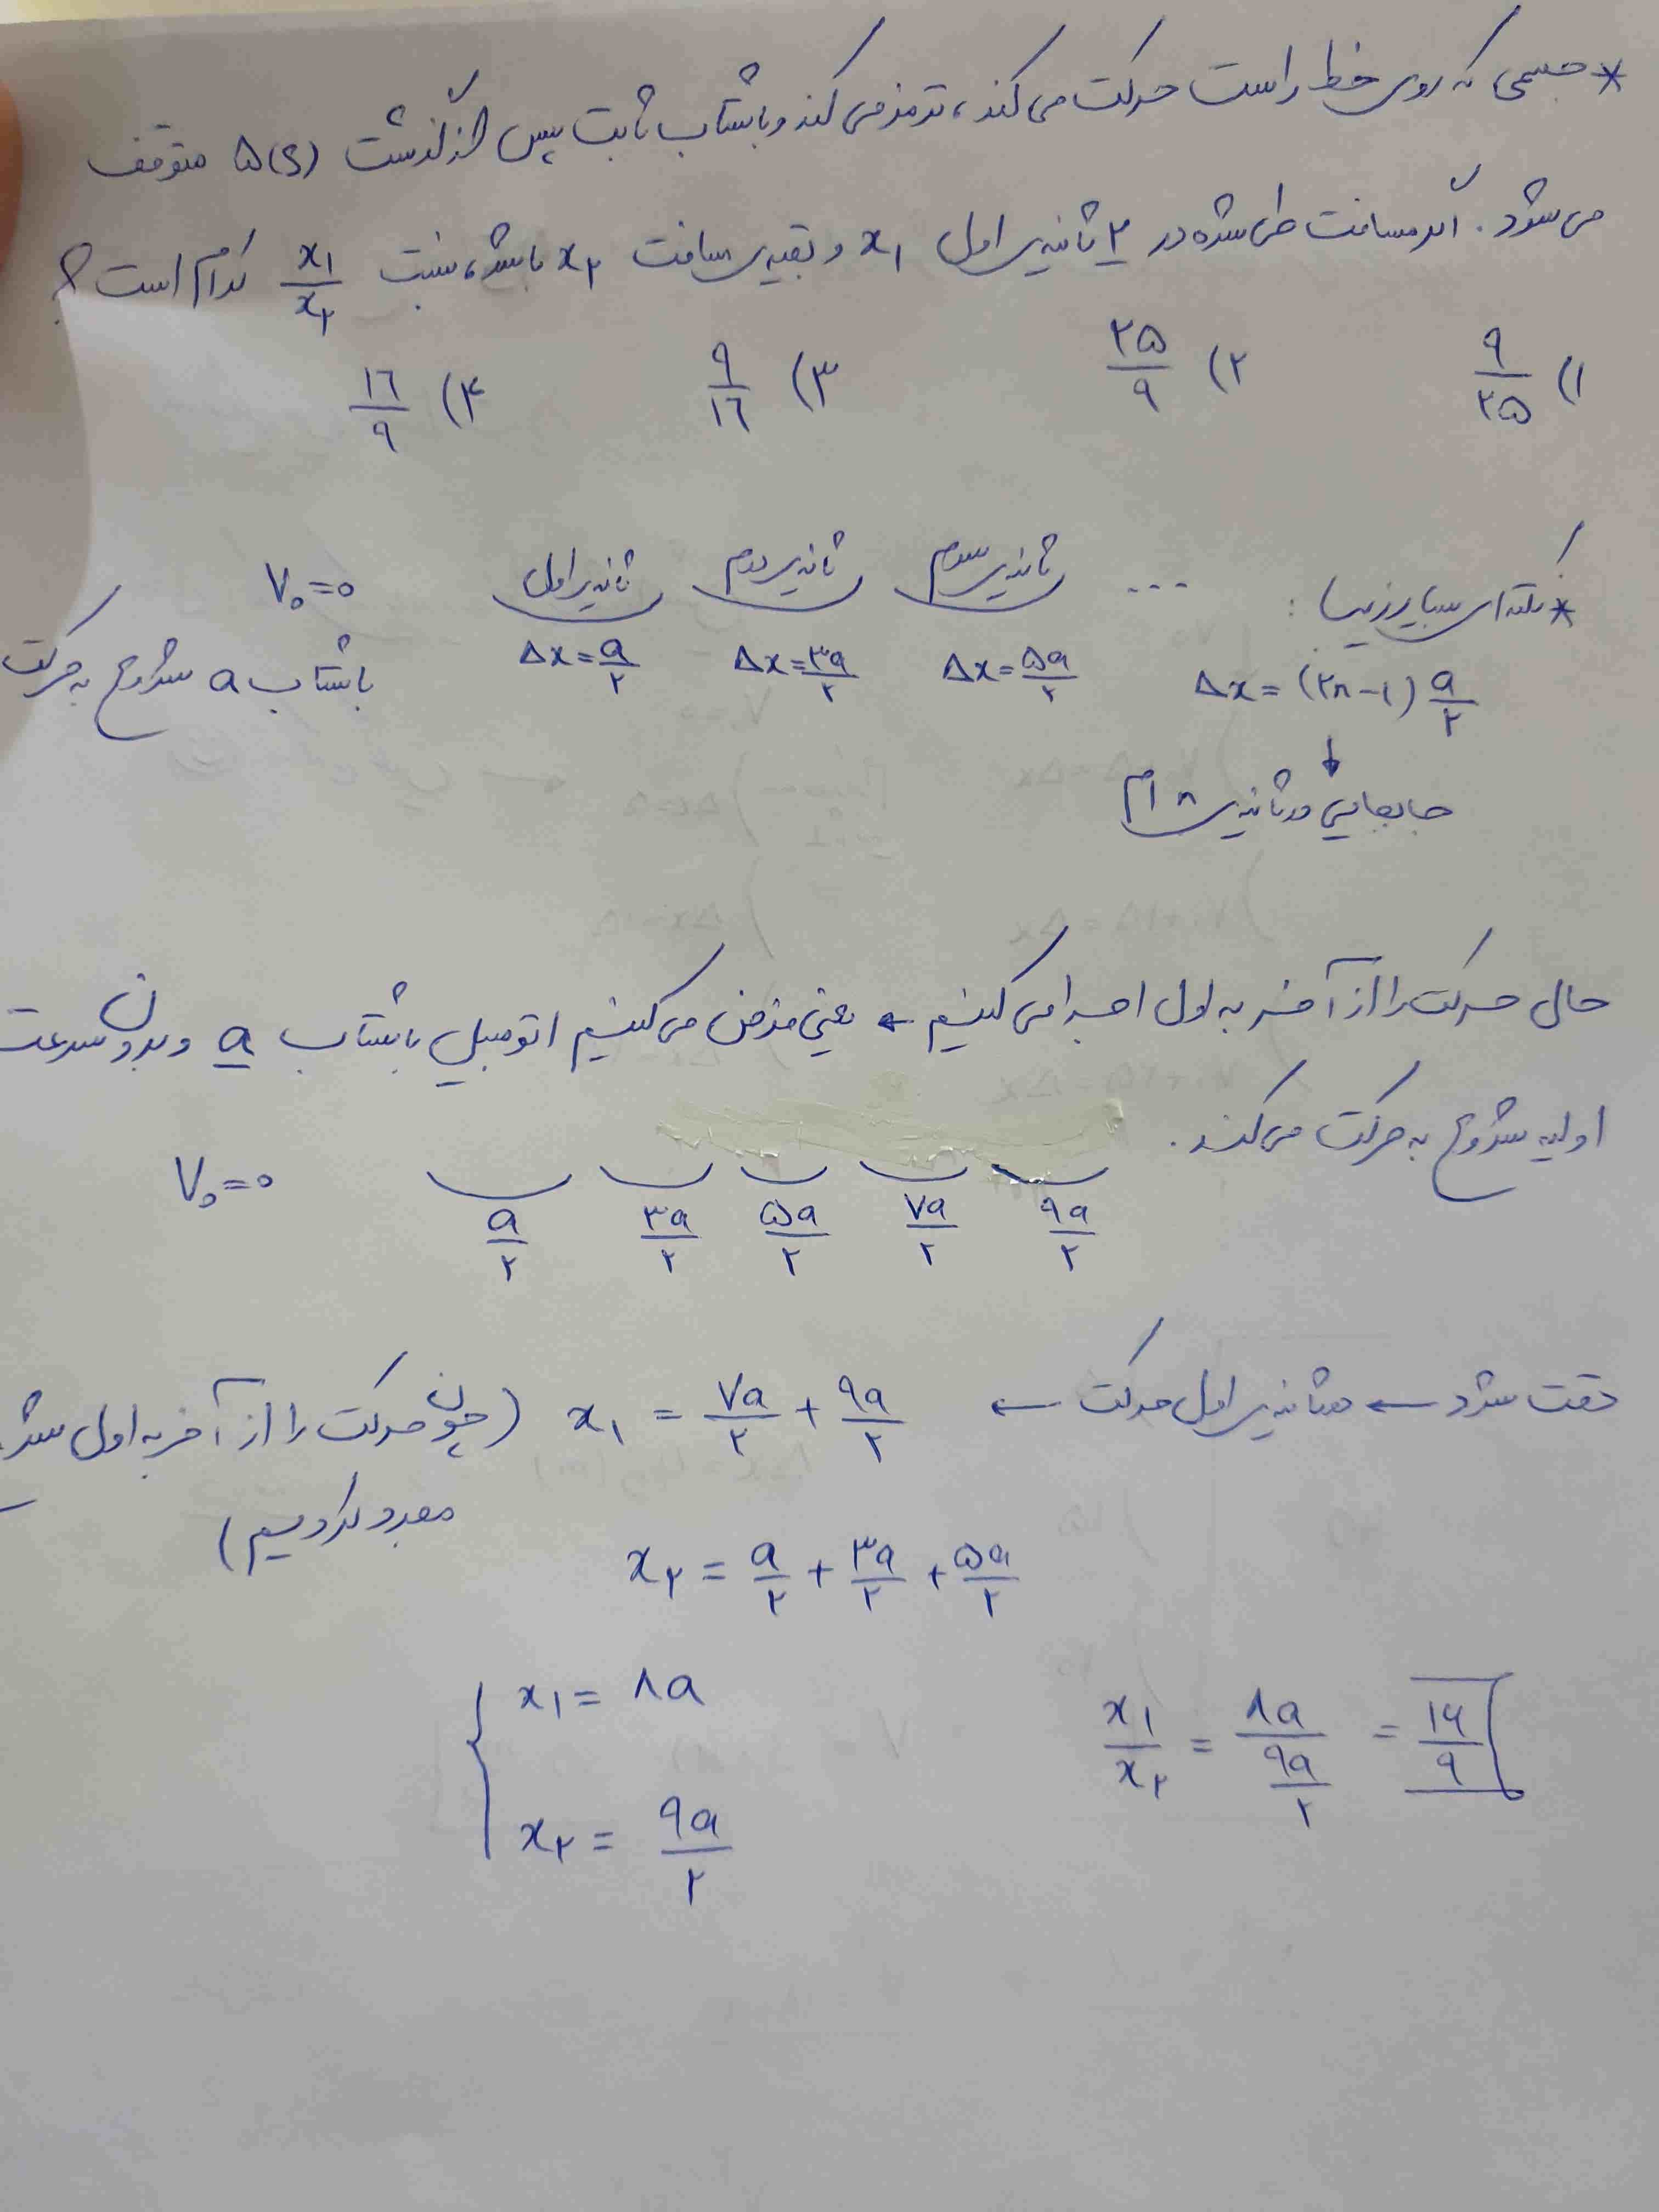 * جسمی که روی خط راست حرکت می‌کند، ترمز می‌کند و با شتاب ثابت پس از گذشت ۵(s) متوقف
می‌شود. اگر مسافت طی شده در ۲ ثانیه‌ی اول x۱ و بقیه‌ی مسافت x۲ باشد، نسبت x۱/x۲ کدام است؟
۱) ۹/۲۵   ۲) ۲۵/۹   ۳) ۹/۱۶   ۴) ۱۶/۹
* نکته‌ای بسیار زیبا :
V۰=۰   ثانیه‌ی اول   ثانیه‌ی دوم   ثانیه‌ی سوم   ...
با شتاب a شروع به حرکت   Δx=a/۲   Δx=۳a/۲   Δx=۵a/۲   Δx=(۲n-۱) a/۲
↓
جابجایی در ثانیه‌ی n ام
حال حرکت را از آخر به اول اجرا می‌کنیم ← یعنی فرض می‌کنیم اتومبیل با شتاب a و بدون سرعت
اولیه شروع به حرکت می‌کند.
V۰=۰   a/۲   ۳a/۲   ۵a/۲   ۷a/۲   ۹a/۲
دقت شود ← دو ثانیه‌ی اول حرکت ← x۱ = ۷a/۲ + ۹a/۲ (چون حرکت را از آخر به اول
کردیم)
x۲ = a/۲ + ۳a/۲ + ۵a/۲
x۱ = ۸a
x۲ = ۹a/۲
x۱/x۲ = ۸a/(۹a/۲) = ۱۶/۹